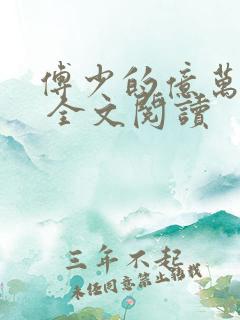 傅少的億萬
全文閱讀
三年不起
未经同意禁止转载